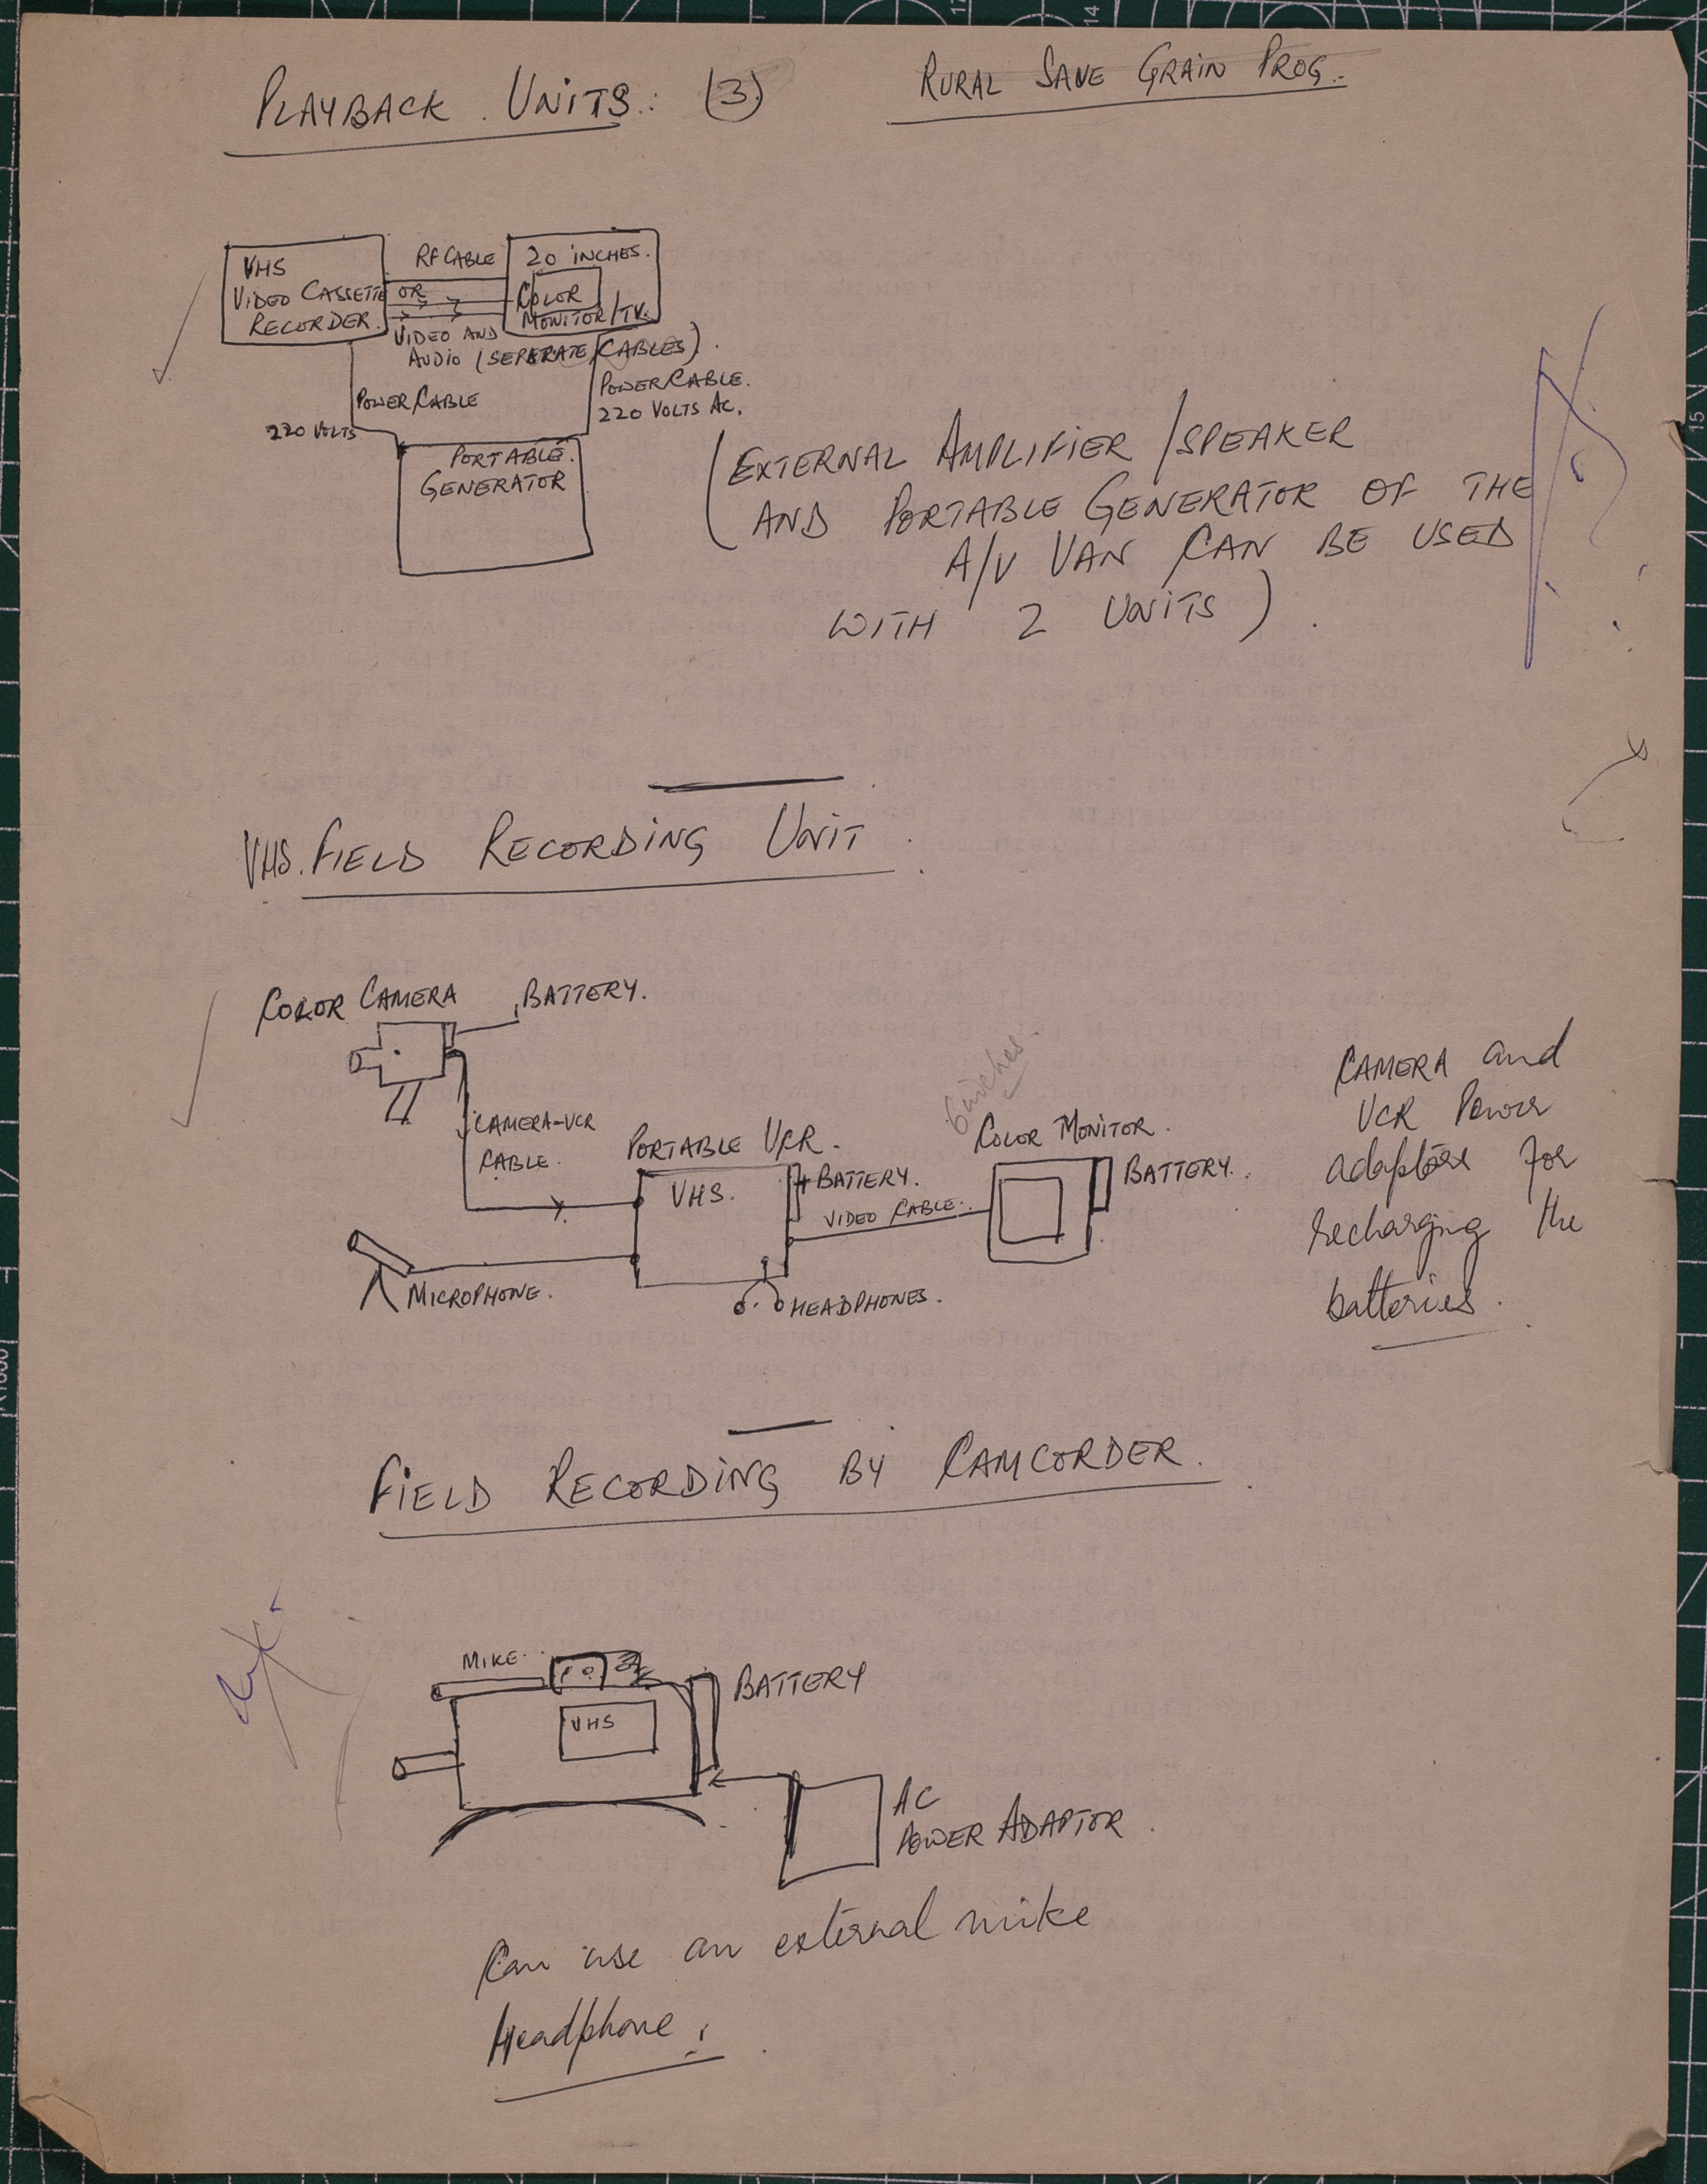 PLAYBACK UNITS: (3)
RURAL SAVE GRAIN PROG.
VHS
VIDEO CASSETTE
RECORDER.
RF CABLE
OR
VIDEO AND
AUDIO (SEPERATE CABLES).
20 INCHES.
COLOR
MONITOR/TV.
POWER CABLE
220 VOLTS
POWER CABLE.
220 VOLTS AC.
PORTABLE.
GENERATOR
(EXTERNAL AMPLIFIER / SPEAKER
AND PORTABLE GENERATOR OF THE
A/V VAN CAN BE USED
WITH 2 UNITS).
VHS. FIELD RECORDING UNIT.
COLOR CAMERA
BATTERY.
CAMERA-VCR
CABLE.
PORTABLE VCR.
VHS.
BATTERY.
VIDEO CABLE.
6 inches.
COLOR MONITOR.
BATTERY.
MICROPHONE.
HEADPHONES.
CAMERA and
VCR Power
adaptors for
recharging the
batteries.
FIELD RECORDING BY CAMCORDER.
MIKE.
VHS
BATTERY
AC
POWER ADAPTOR.
Can use an external mike
Headphone.